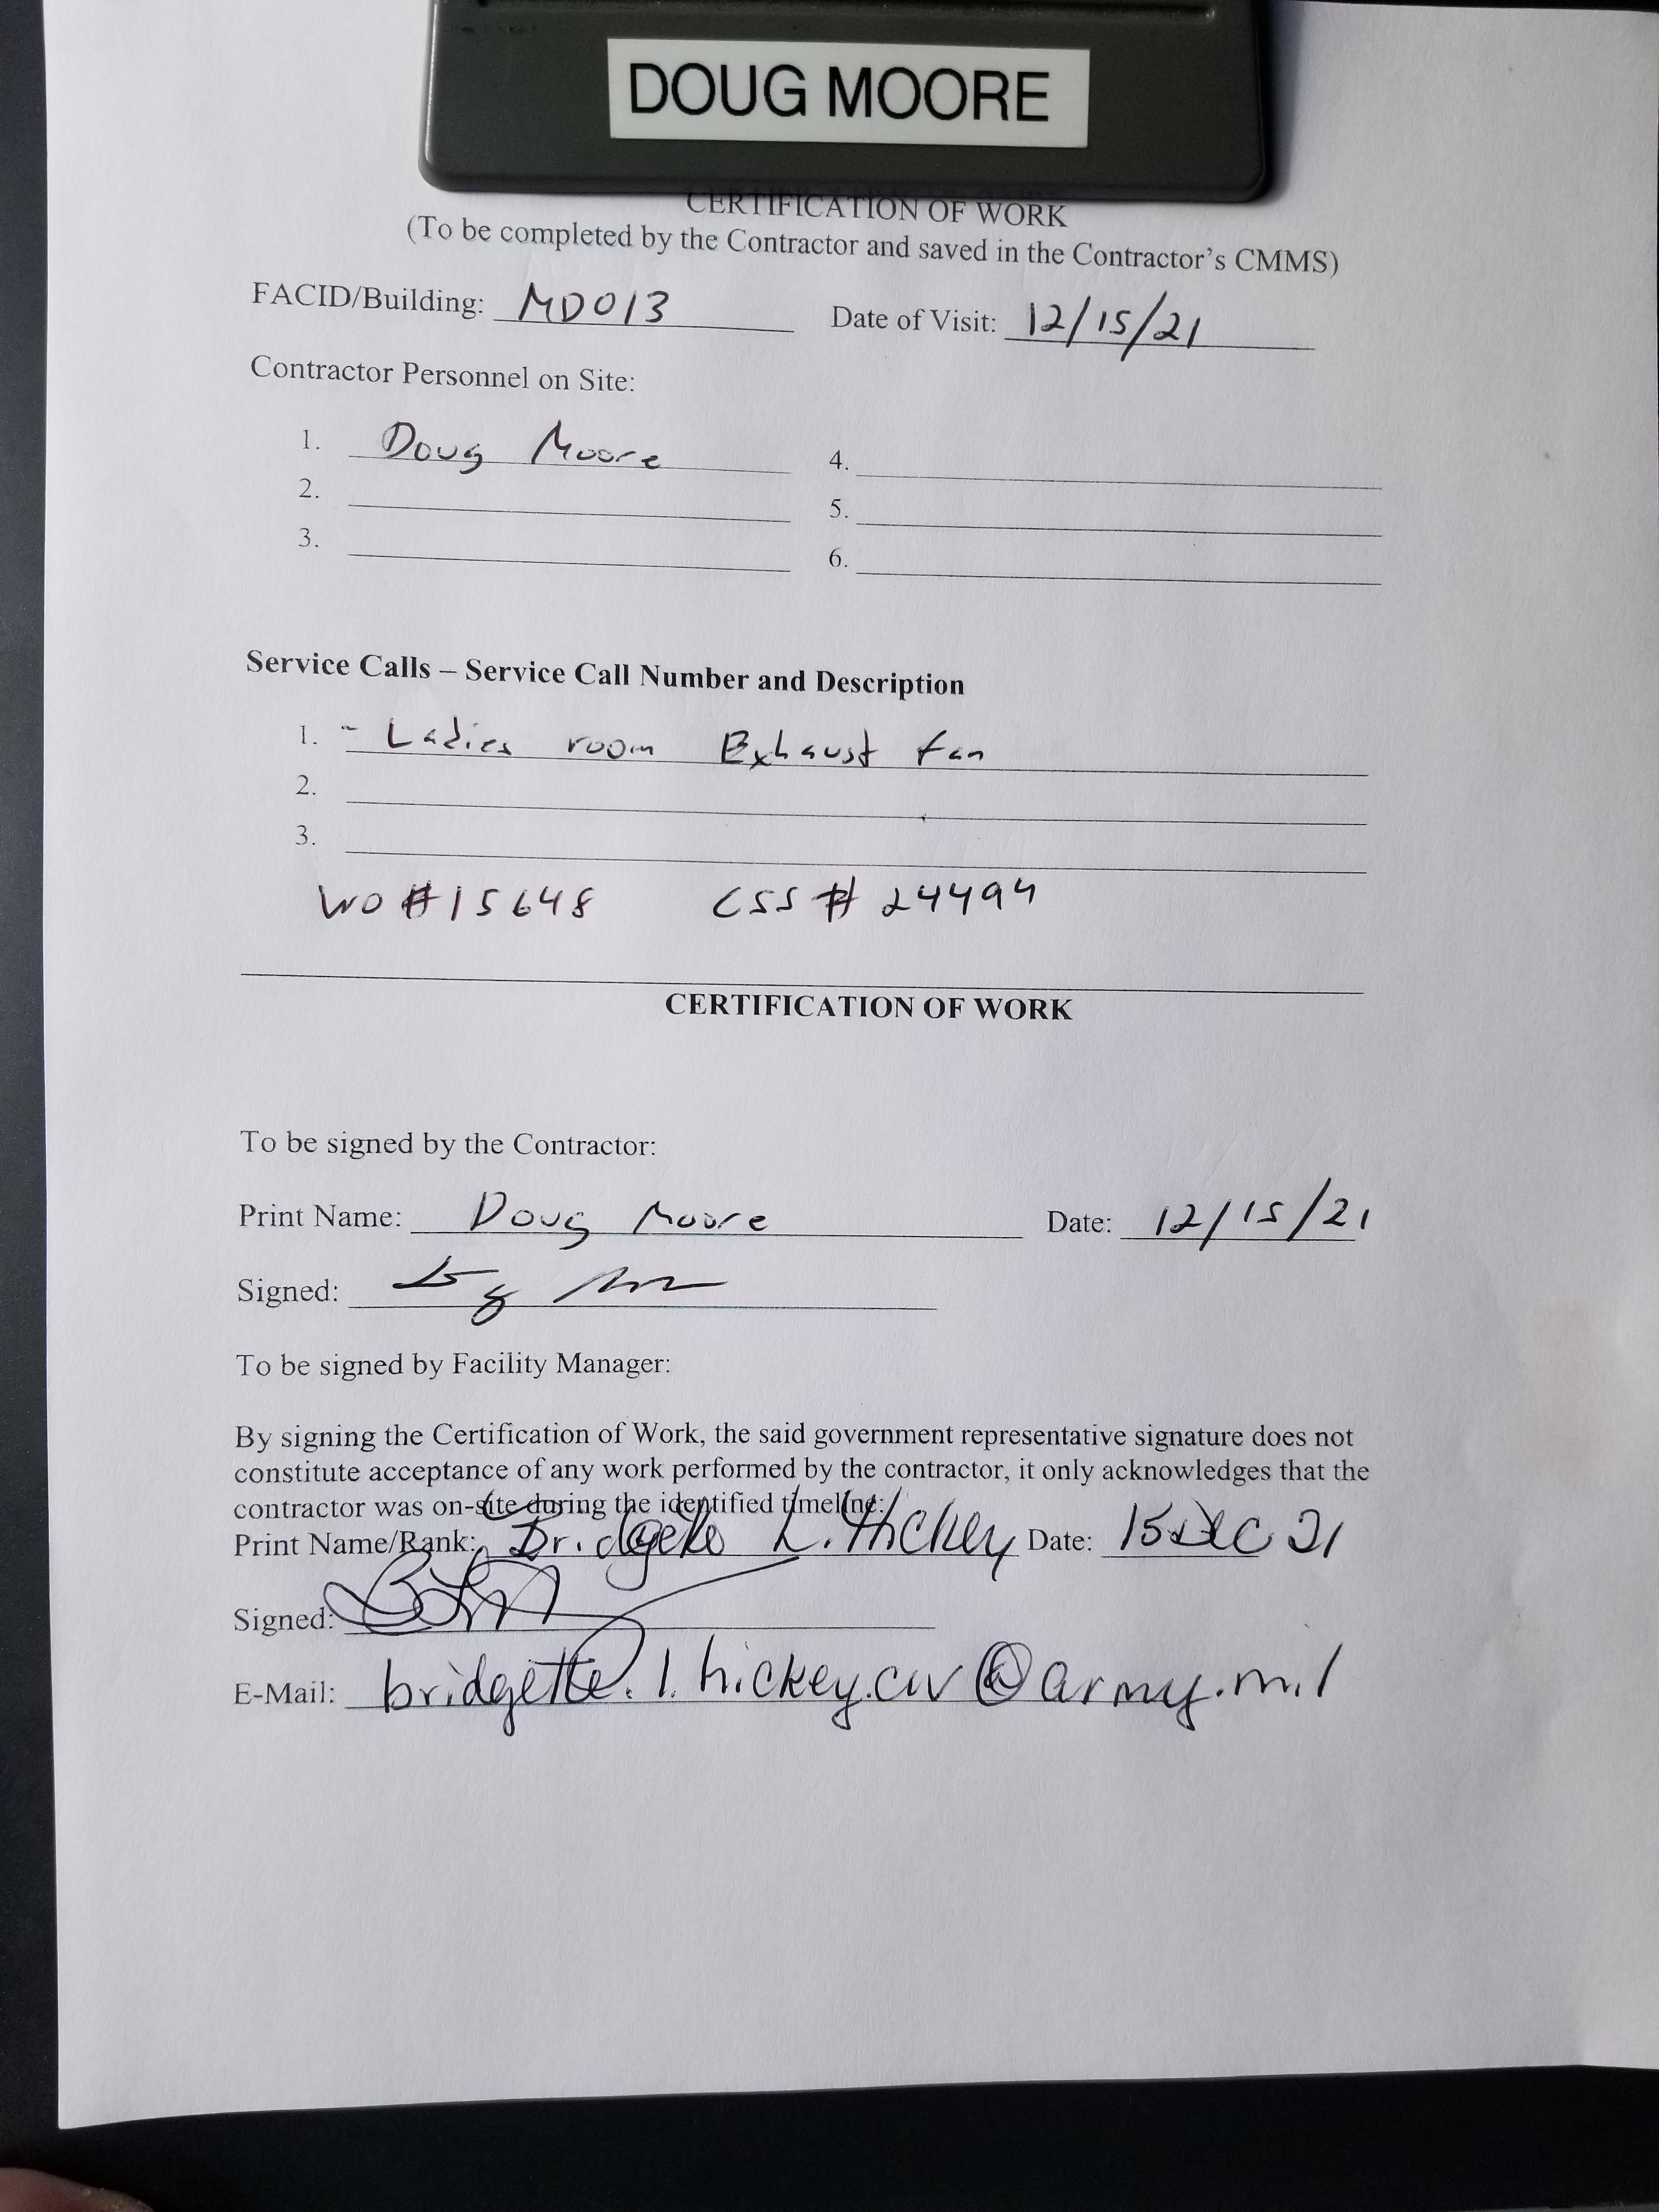 DOUG MOORE
CERTIFICATION OF WORK
(To be completed by the Contractor and saved in the Contractor's CMMS)
FACID/Building: MD013 Date of Visit: 12/15/21
Contractor Personnel on Site:
1. Doug Moore 4.
2. 5.
3. 6.
Service Calls – Service Call Number and Description
1. - Ladies room Exhaust fan
2.
3.
WO #15648 CSS # 24494
CERTIFICATION OF WORK
To be signed by the Contractor:
Print Name: Doug Moore Date: 12/15/21
Signed:
To be signed by Facility Manager:
By signing the Certification of Work, the said government representative signature does not
constitute acceptance of any work performed by the contractor, it only acknowledges that the
contractor was on-site during the identified timeline:
Print Name/Rank: Bridgette L. Hickey Date: 15 DEC 21
Signed:
E-Mail: bridgette.l.hickey.civ@army.mil